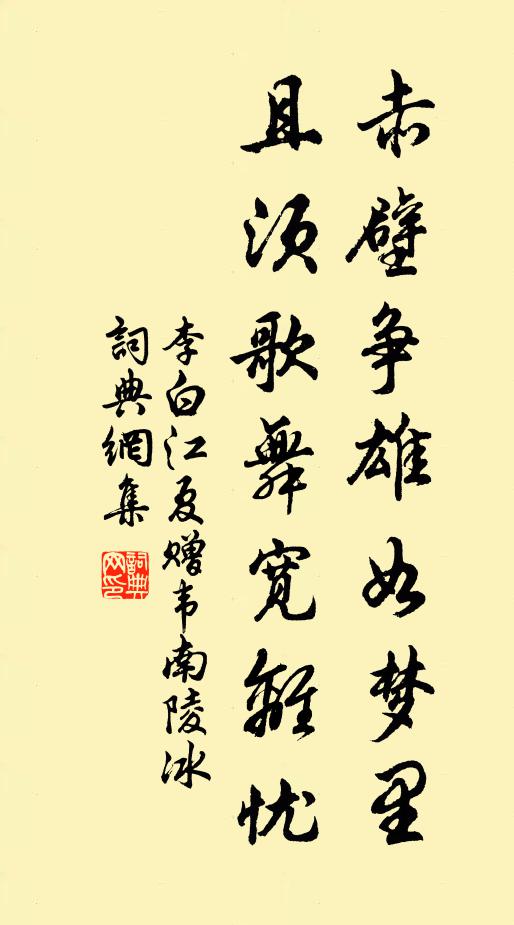 赤壁争雄如梦里
且须歌舞宽離忧
李白江夏赠韦南陵冰
詞典網集
詞典网印